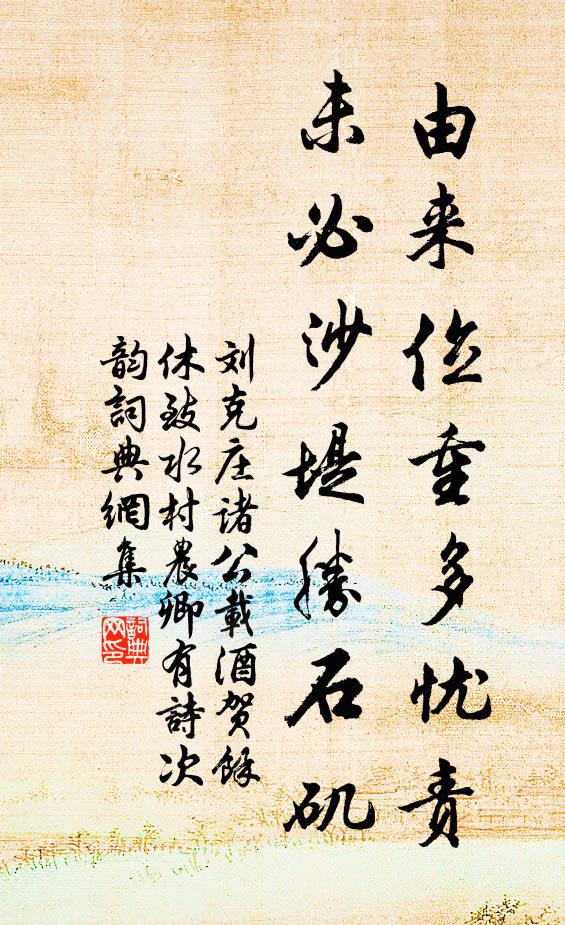 由来位重多忧责
未必沙堤勝石矶
刘克庄诸公載酒贺餘
休致水村農卿有詩次
韵詞典網集
詞典网印